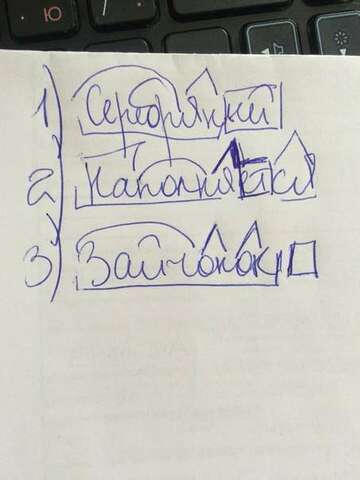 Ю
Б
1) Серебряный
2) Наполняйся
3) Зайчонок